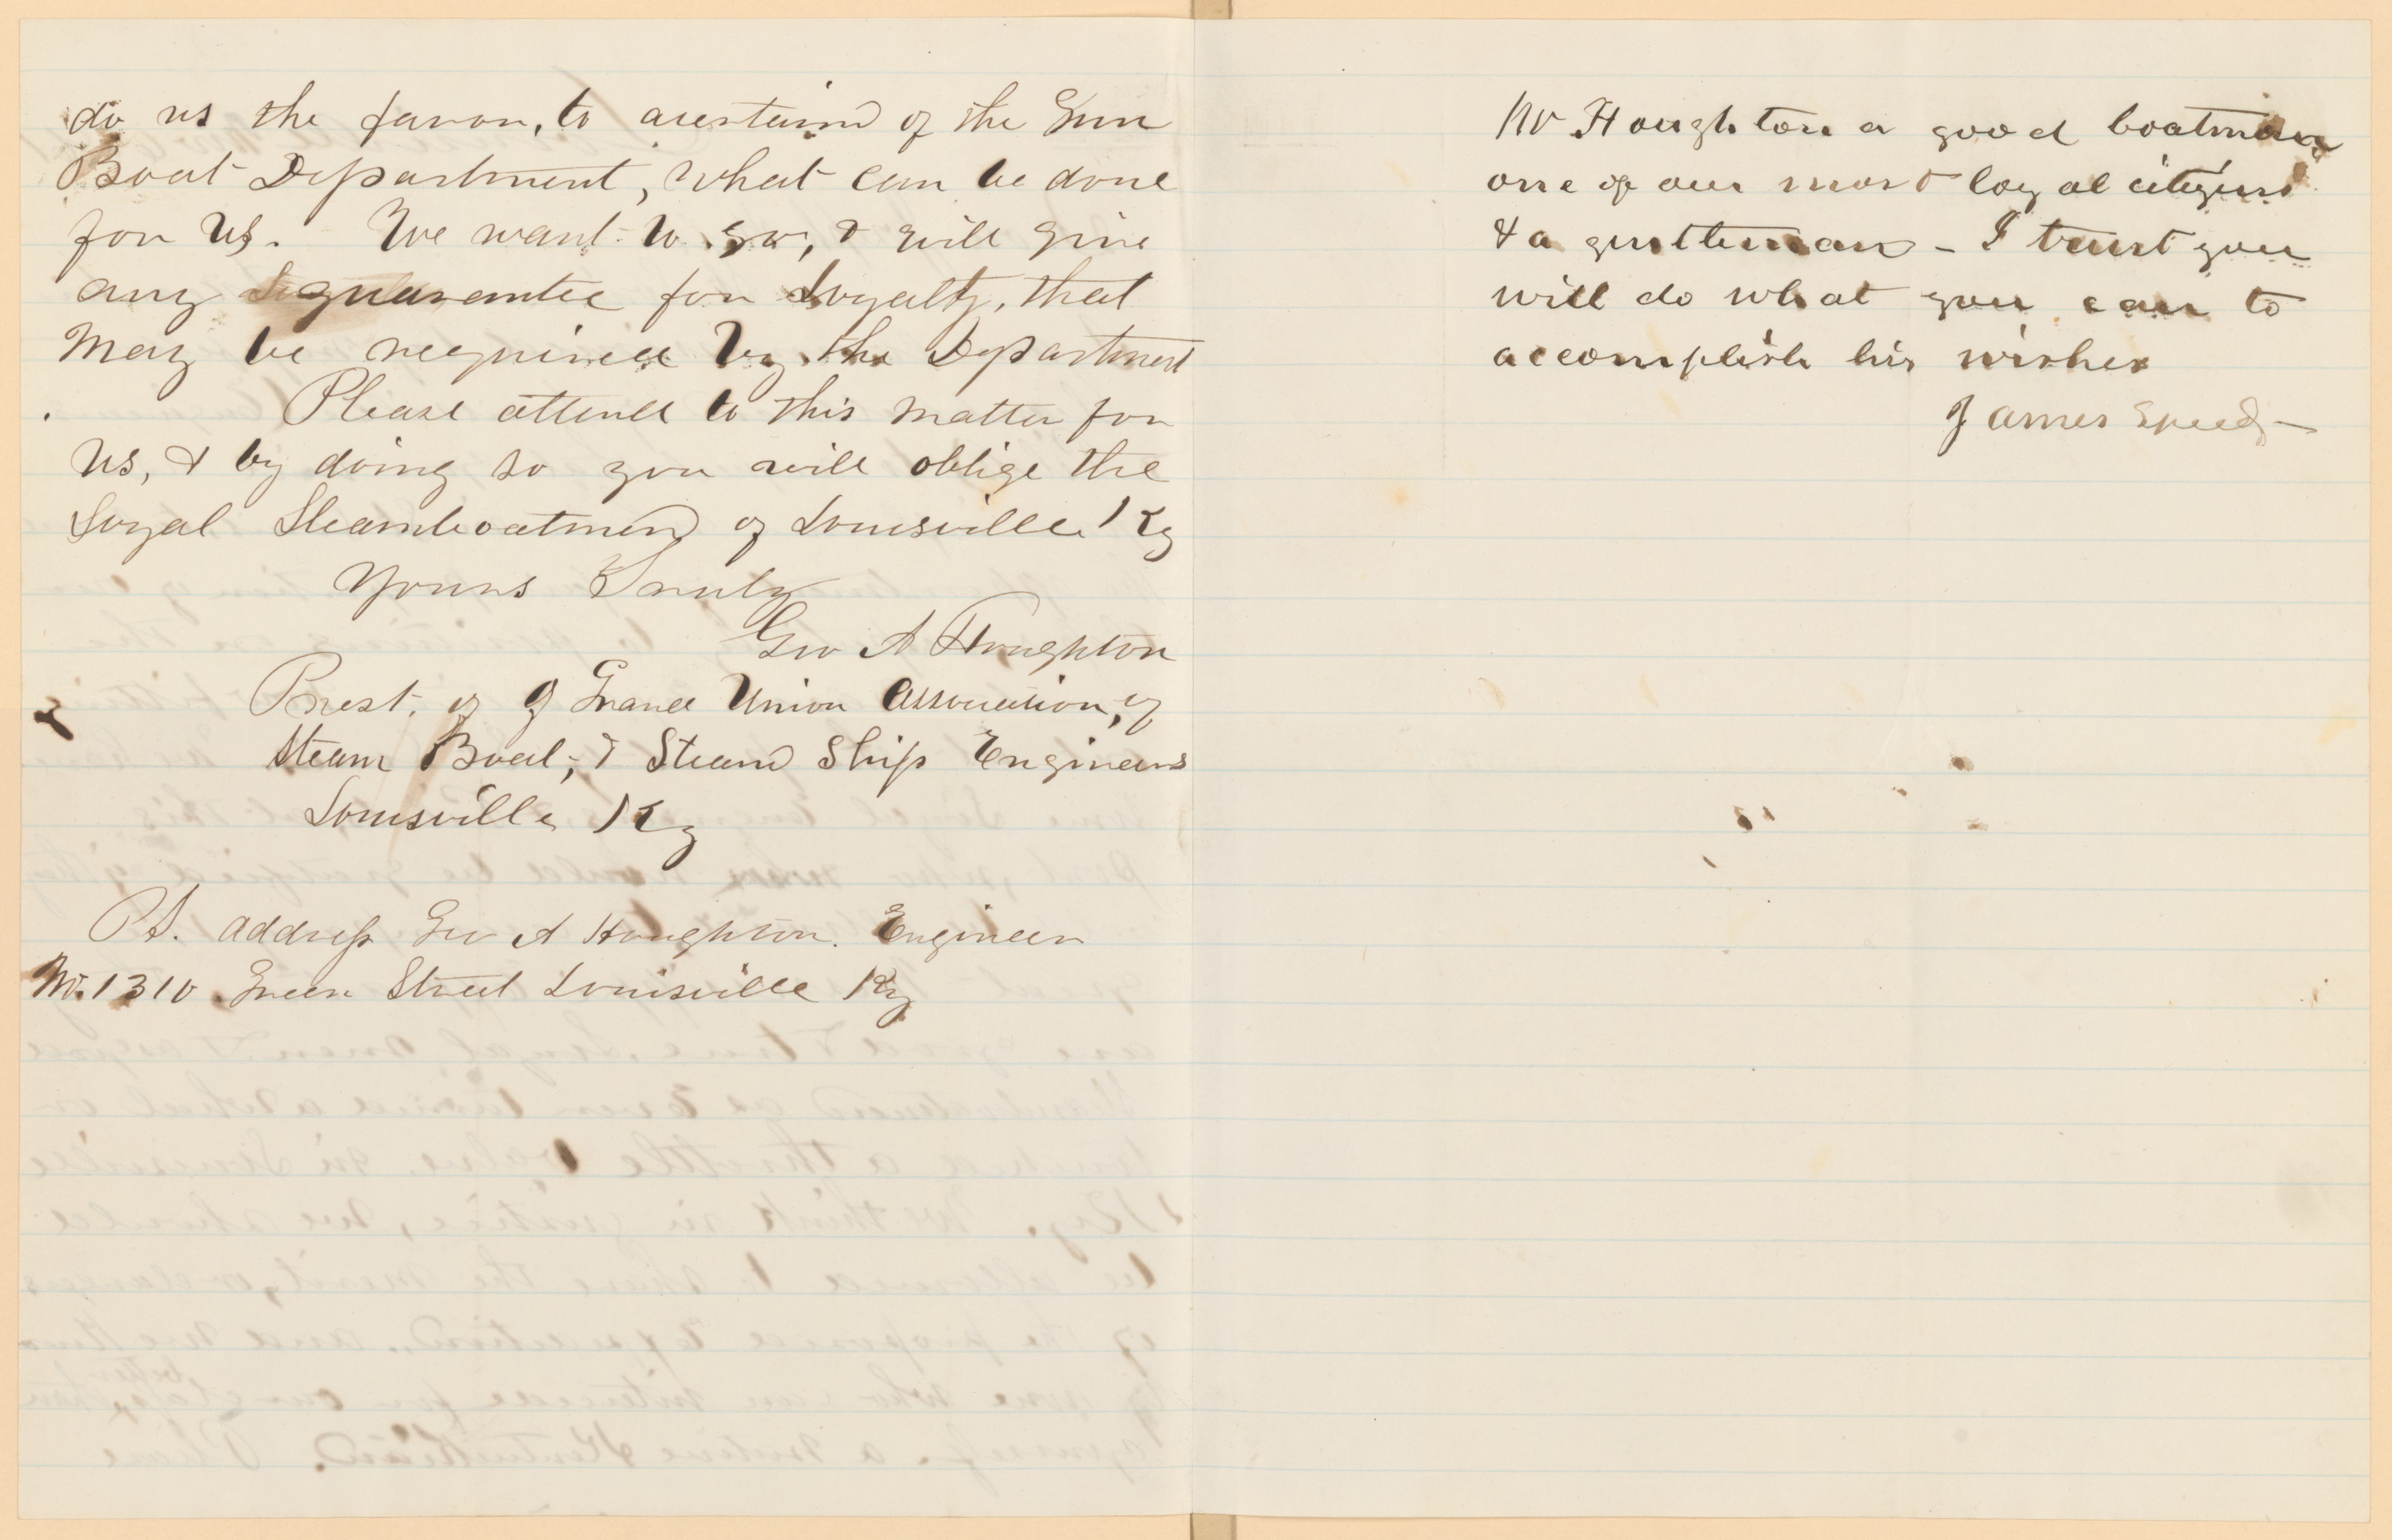 do us the favor, to acertain of the Gun
Boat Department, what can be done
for us. We want to go, & will give
any guarantee for Loyalty, that
May be required by the Department
Please attend to this matter for
us, & by doing so you will oblige the
Loyal Steamboatmen of Louisville Ky
Yours Truly
Geo A Houghton
Prest. of G Grand Union Association, of
Steam Boat, & Steam Ship Engineers
Louisville Ky
PS. address Geo A Houghton. Engineer
No. 1310 Green Street Louisville Ky
Mr Houghton a good boatman
one of our most loyal citizens
& a gentleman - I trust you
will do what you can to
accomplish his wishes
James Speed -